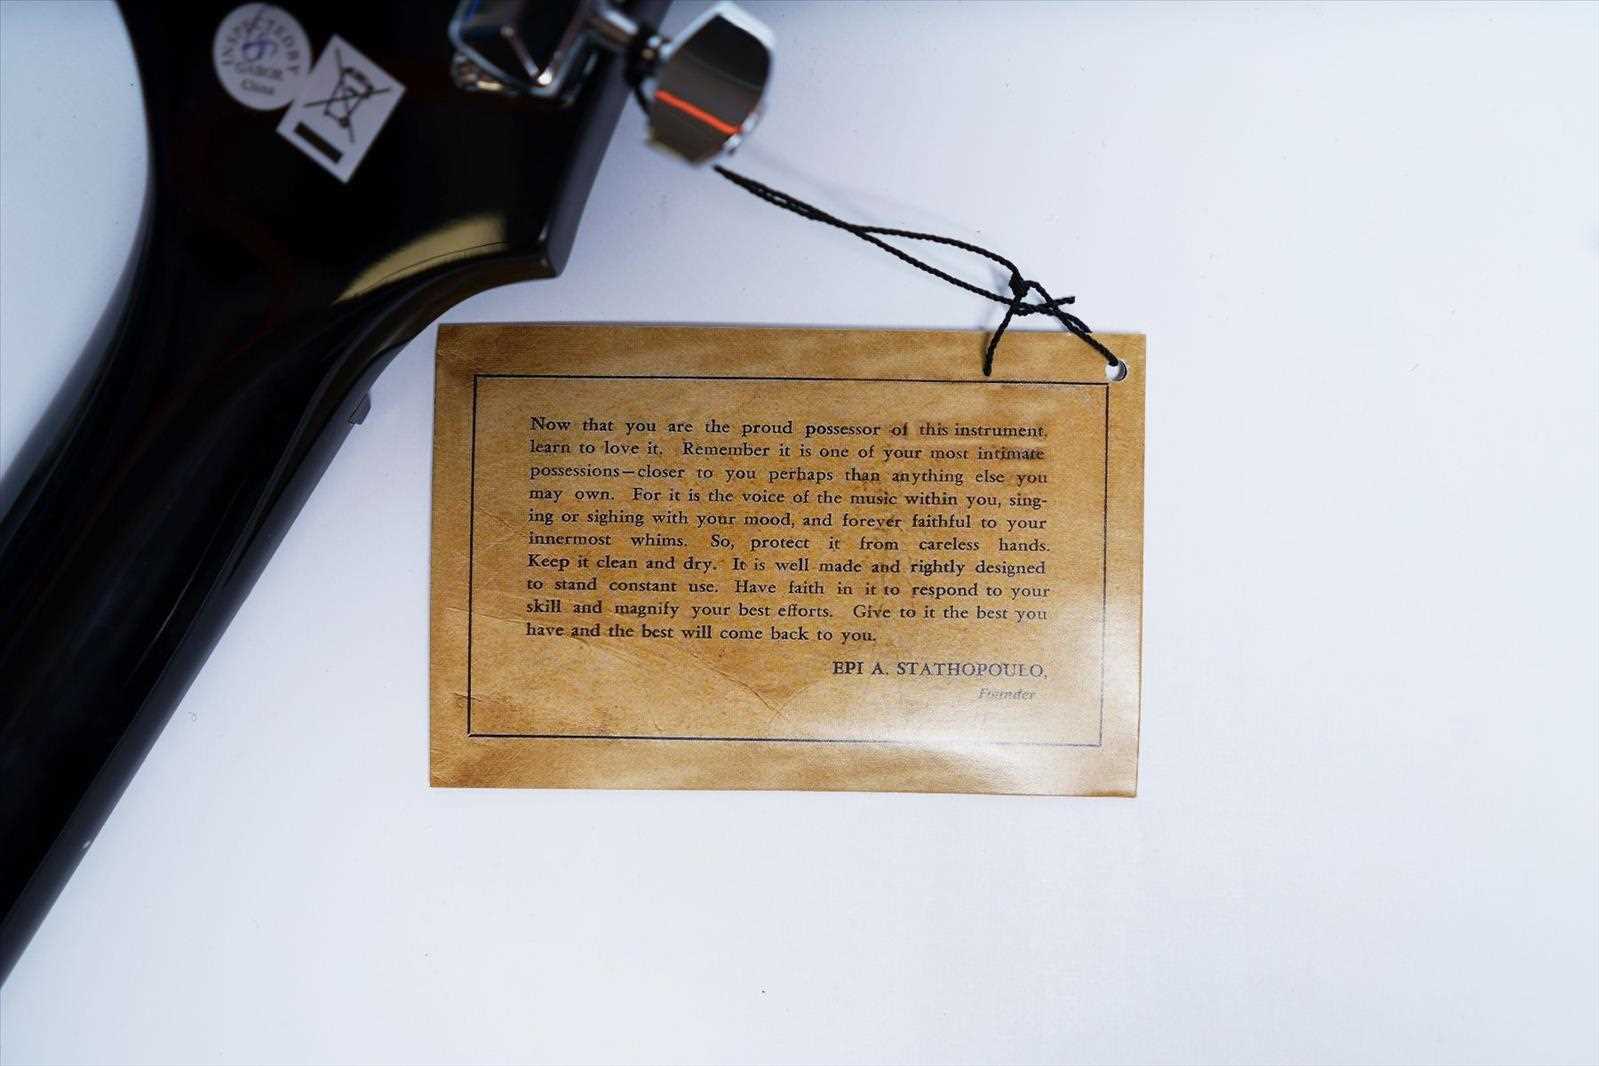 INSPECTED BY
China
Now that you are the proud possessor of this instrument,
learn to love it. Remember it is one of your most intimate
possessions—closer to you perhaps than anything else you
may own. For it is the voice of the music within you, sing-
ing or sighing with your mood, and forever faithful to your
innermost whims. So, protect it from careless hands.
Keep it clean and dry. It is well made and rightly designed
to stand constant use. Have faith in it to respond to your
skill and magnify your best efforts. Give to it the best you
have and the best will come back to you.
EPI A. STATHOPOULO,
Founder